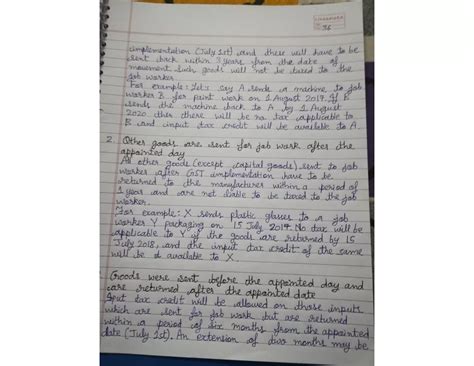 CLASSMATE
36
implementation (July 1st) and these will have to be
sent back within 3 years from the date of
movement. Such goods will not be taxed to the
job worker.
For example: Let's say A sends a machine to job
worker B for paint work on 1 August 2017. If B
sends the machine back to A by 1 August
2020 then there will be no tax applicable to
B and input tax credit will be available to A.
2. Other goods are sent for job work after the
appointed day
All other goods (except capital goods) sent to job
worker after GST implementation have to be
returned to the manufacturer within a period of
1 year and are not liable to be taxed to the job
worker.
For example: X sends plastic glasses to a job
worker Y packaging on 15 July 2017. No tax will be
applicable to Y if the goods are returned by 15
July 2018, and the input tax credit of the same
will be available to X.
Goods were sent before the appointed day and
are returned after the appointed date
Input tax credit will be allowed on those inputs
which are sent for job work but are returned
within a period of six months from the appointed
date (July 1st). An extension of two months may be